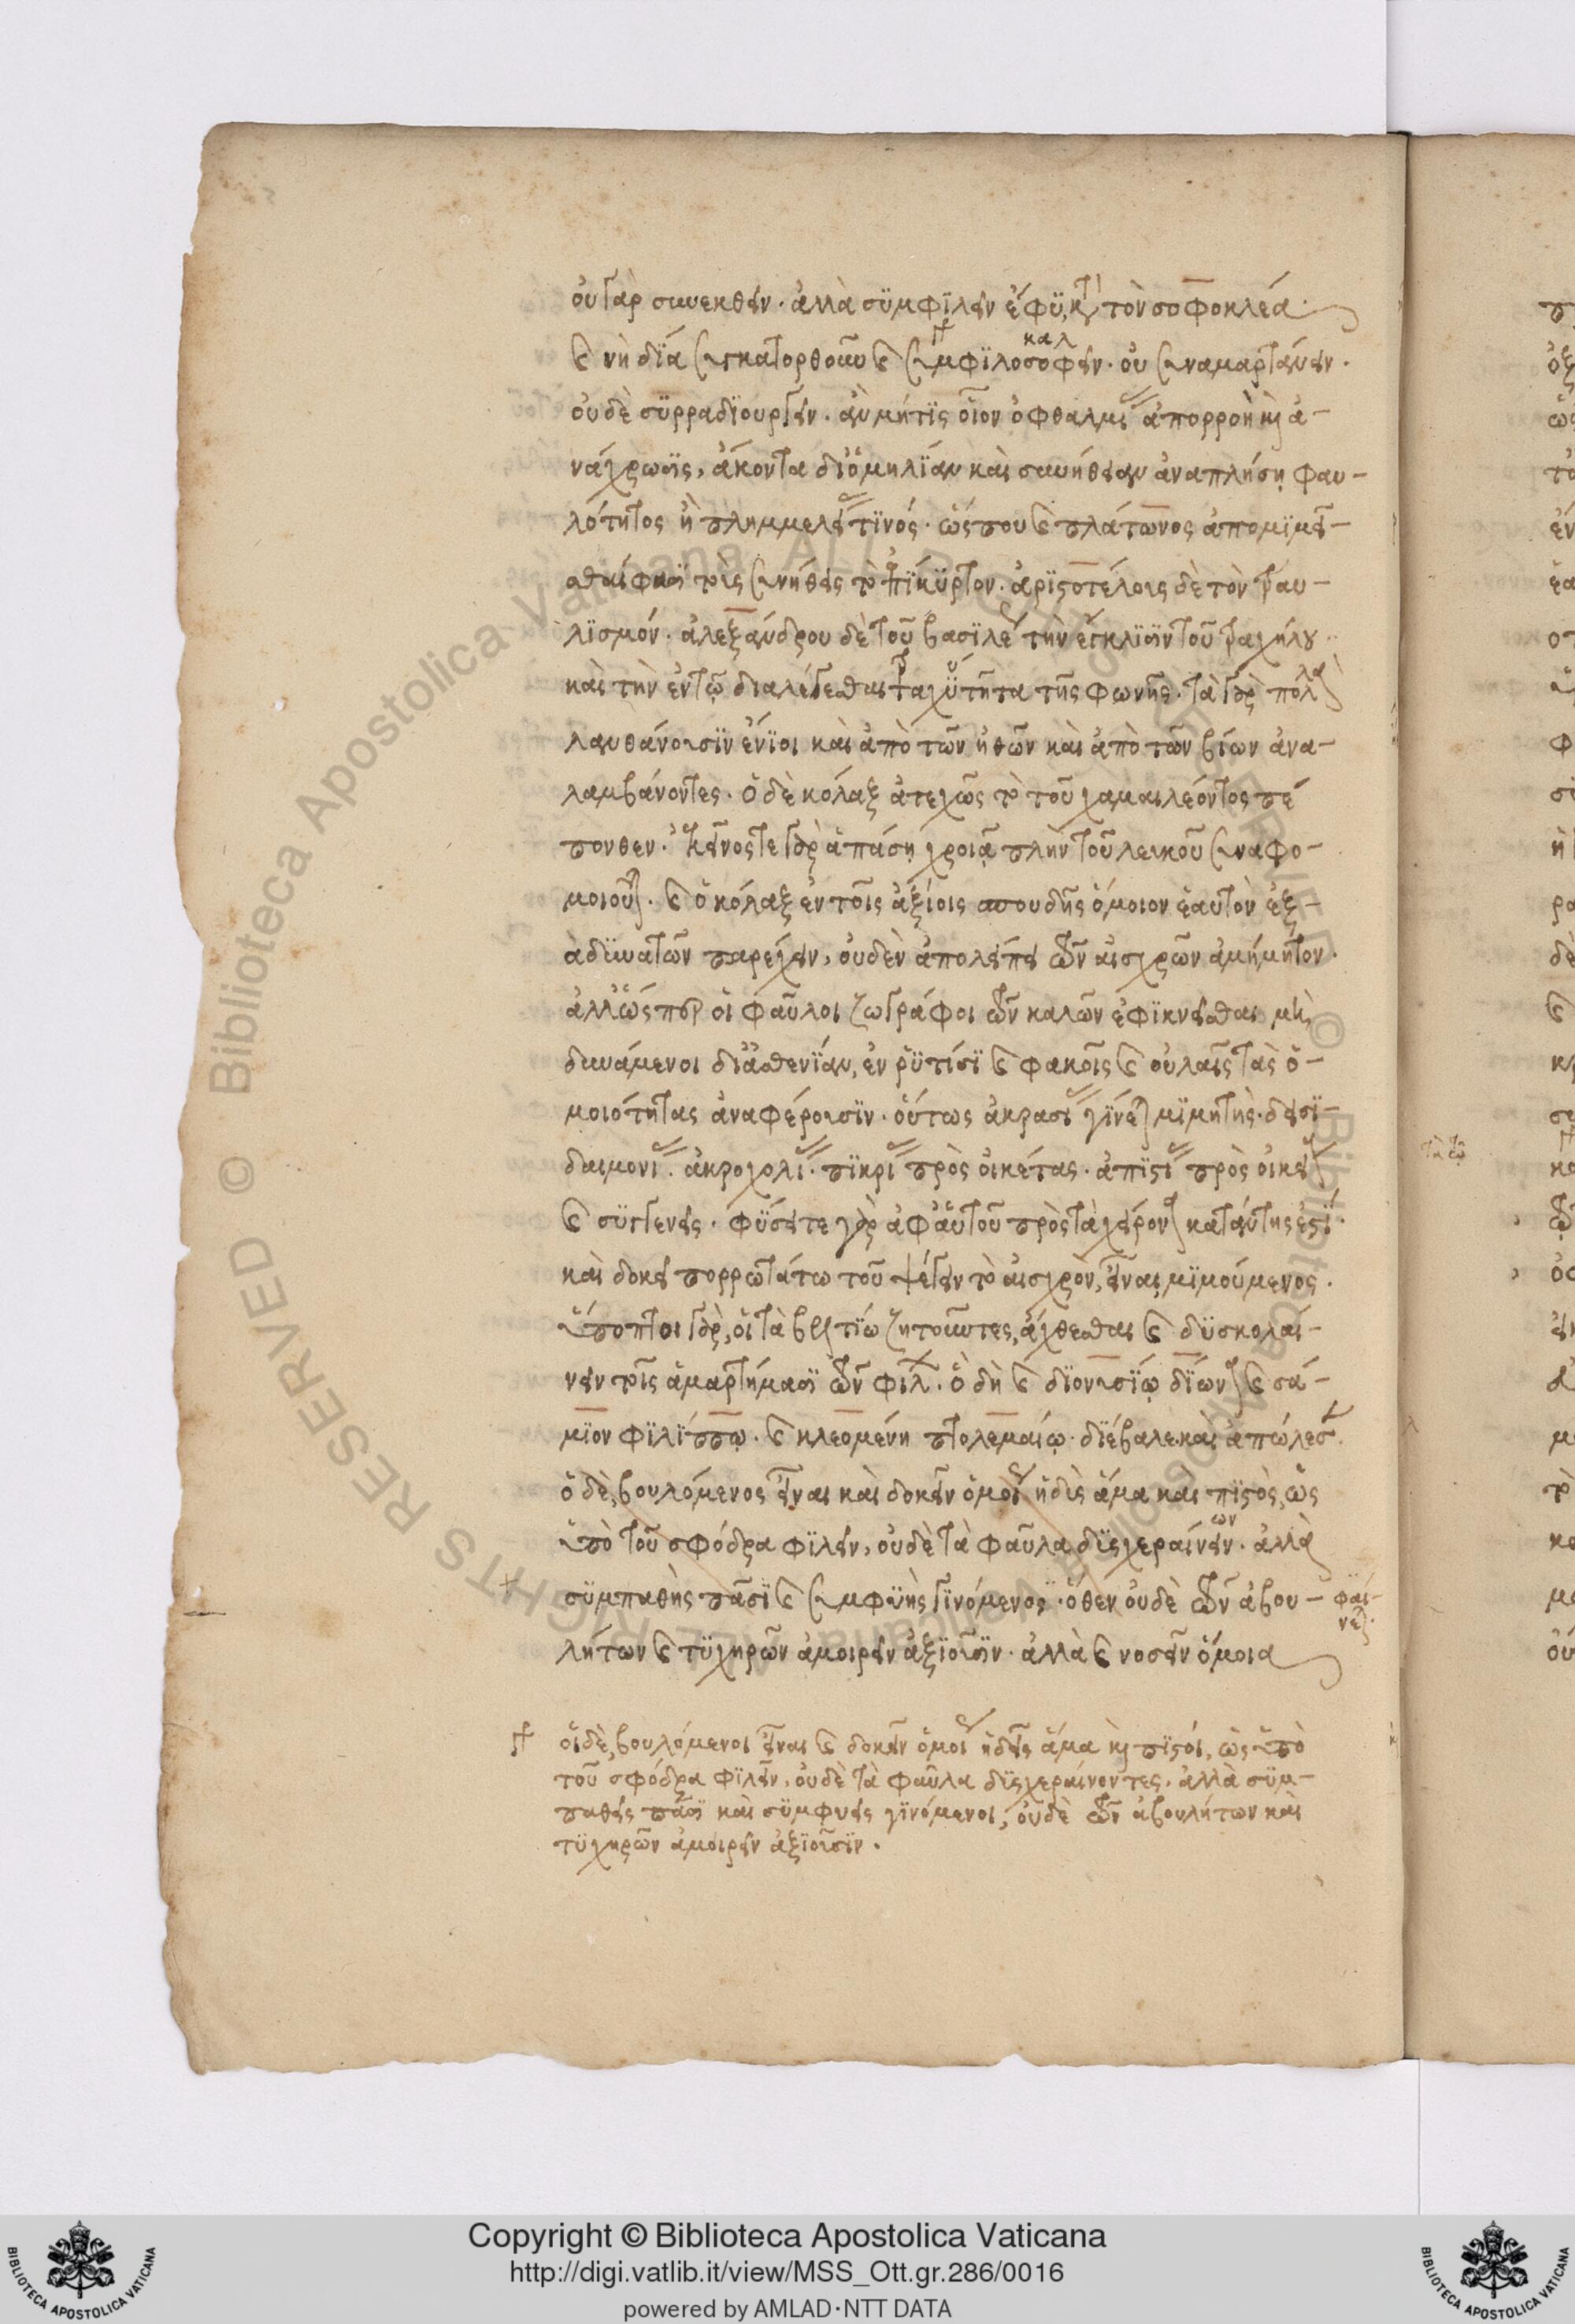 οὐ γὰρ συνεκθεῖν· ἀλλὰ συμφιλεῖν ἔφυ, κατὰ τὸν σοφοκλέα·
καὶ νὴ δία συγκατορθοῦν καὶ συμφιλοσοφεῖν· οὐ συναμαρτάνειν·
καλ
οὐδὲ συρραδιουργεῖν· ἂν μή τις οἷον ὀφθαλμίας ἀπορροὴ καὶ ἀ-
νάχρωσις, ἄκοντα δι' ὁμιλίαν καὶ συνήθειαν ἀναπλήσῃ φαυ-
λότητος ἢ πλημμελείας τινός· ὥς που καὶ πλάτωνος ἀπομιμεῖ-
σθαί φασι τοὺς συνήθεις τὸ ἐπίκυρτον· ἀριστοτέλους δὲ τὸν τραυ-
λισμόν· ἀλεξάνδρου δὲ τοῦ βασιλέως τὴν ἔγκλισιν τοῦ τραχήλου
καὶ τὴν ἐν τῷ διαλέγεσθαι τραχύτητα τῆς φωνῆς· τὰ γὰρ πολλὰ
λανθάνουσιν ἔνιοι καὶ ἀπὸ τῶν ἠθῶν καὶ ἀπὸ τῶν βίων ἀνα-
λαμβάνοντες· ὁ δὲ κόλαξ ἀτεχνῶς τὸ τοῦ χαμαιλέοντος πέ
πονθεν· ἐκεῖνός τε γὰρ ἁπάσῃ χροιᾷ πλὴν τοῦ λευκοῦ συναφο-
μοιοῦται· καὶ ὁ κόλαξ ἐν τοῖς ἀξίοις σπουδῆς ὅμοιον ἑαυτὸν ἐξ-
αδυνατῶν παρέχειν, οὐδὲν ἀπολείπει τῶν αἰσχρῶν ἀμίμητον·
ἀλλ' ὥσπερ οἱ φαῦλοι ζωγράφοι τῶν καλῶν ἐφικνεῖσθαι μὴ
δυνάμενοι δι' ἀσθένειαν, ἐν ῥυτίσι καὶ φακοῖς καὶ οὐλαῖς τὰς ὁ-
μοιότητας ἀναφέρουσιν· οὕτως ἀκρασίας γίνεται μιμητὴς· δεισι-
δαιμονίας· ἀκροχολίας· πικρίας πρὸς οἰκέτας· ἀπιστίας πρὸς οἰκείους
καὶ συγγενεῖς· φύσει τε γὰρ ἀφ' αὑτοῦ πρὸς τὰ χείρονα κατάντης ἐστί·
καὶ δοκεῖ πορρωτάτω τοῦ ψέγειν τὸ αἰσχρὸν, εἶναι, μιμούμενος·
ὕποπτοι γὰρ, οἱ τὰ βελτίω ζητοῦντες, ἄχθεσθαι καὶ δυσκολαί-
νειν τοῖς ἁμαρτήμασι τῶν φίλων· ὃ δὴ καὶ διονυσίῳ δίωνα καὶ σά-
μιον φιλίππῳ· καὶ κλεομένη πτολεμαίῳ· διέβαλε καὶ ἀπώλεσεν·
ὁ δὲ, βουλόμενος εἶναι καὶ δοκεῖν ὁμοίως ἡδὺς ἅμα καὶ πιστὸς, ὡς
ὑπὸ τοῦ σφόδρα φιλεῖν, οὐδὲ τὰ φαῦλα δυσχεραίνειν· ἀλλὰ
ων
συμπαθὴς πᾶσι καὶ συμφυὴς γινόμενος· ὅθεν οὐδὲ τῶν ἀβου-
φαί-
νεται
λήτων καὶ τυχηρῶν ἀμοιρεῖν ἀξιοῦσιν· ἀλλὰ καὶ νοσεῖν ὅμοια
οἱ δὲ, βουλόμενοι εἶναι καὶ δοκεῖν ὁμοίως ἡδεῖς ἅμα καὶ πιστοί, ὡς ὑπὸ
τοῦ σφόδρα φιλεῖν, οὐδὲ τὰ φαῦλα δυσχεραίνοντες· ἀλλὰ συμ-
παθεῖς πᾶσι καὶ συμφυεῖς γινόμενοι, οὐδὲ τῶν ἀβουλήτων καὶ
τυχηρῶν ἀμοιρεῖν ἀξιοῦσιν·
Copyright © Biblioteca Apostolica Vaticana
http://digi.vatlib.it/view/MSS_Ott.gr.286/0016
powered by AMLAD·NTT DATA